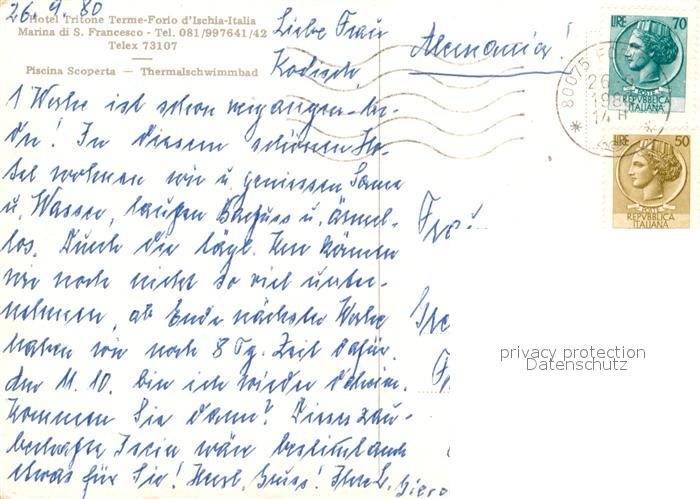 26. 9. 80
Hotel Tritone Terme-Forio d'Ischia-Italia
Marina di S. Francesco - Tel. 081/997641/42
Telex 73107
Piscina Scoperta — Thermalschwimmbad
Liebe Frau
1 Woche ist schon vergangen
In diesem schönen Ho-
tel wohnen wir u. geniessen Sonne
u. Wasser, laufen barfuss u. ärmel-
los. Durch die tägl. Kur können
wir noch nicht so viel unter-
nehmen, ab Ende nächster Woche
haben wir noch 8 Tg. Zeit dafür.
den 11. 10. bin ich wieder daheim.
Kommen Sie dann? Dieses zau-
berhafte Insel wäre bestimmt auch
etwas für Sie! Herzl. Gruss! Ihre L.
Alemania!
LIRE 70
POSTE
REPVBBLICA
ITALIANA
80075 FO
26
198
14 H
LIRE 50
POSTE
REPVBBLICA
ITALIANA
privacy protection
Datenschutz